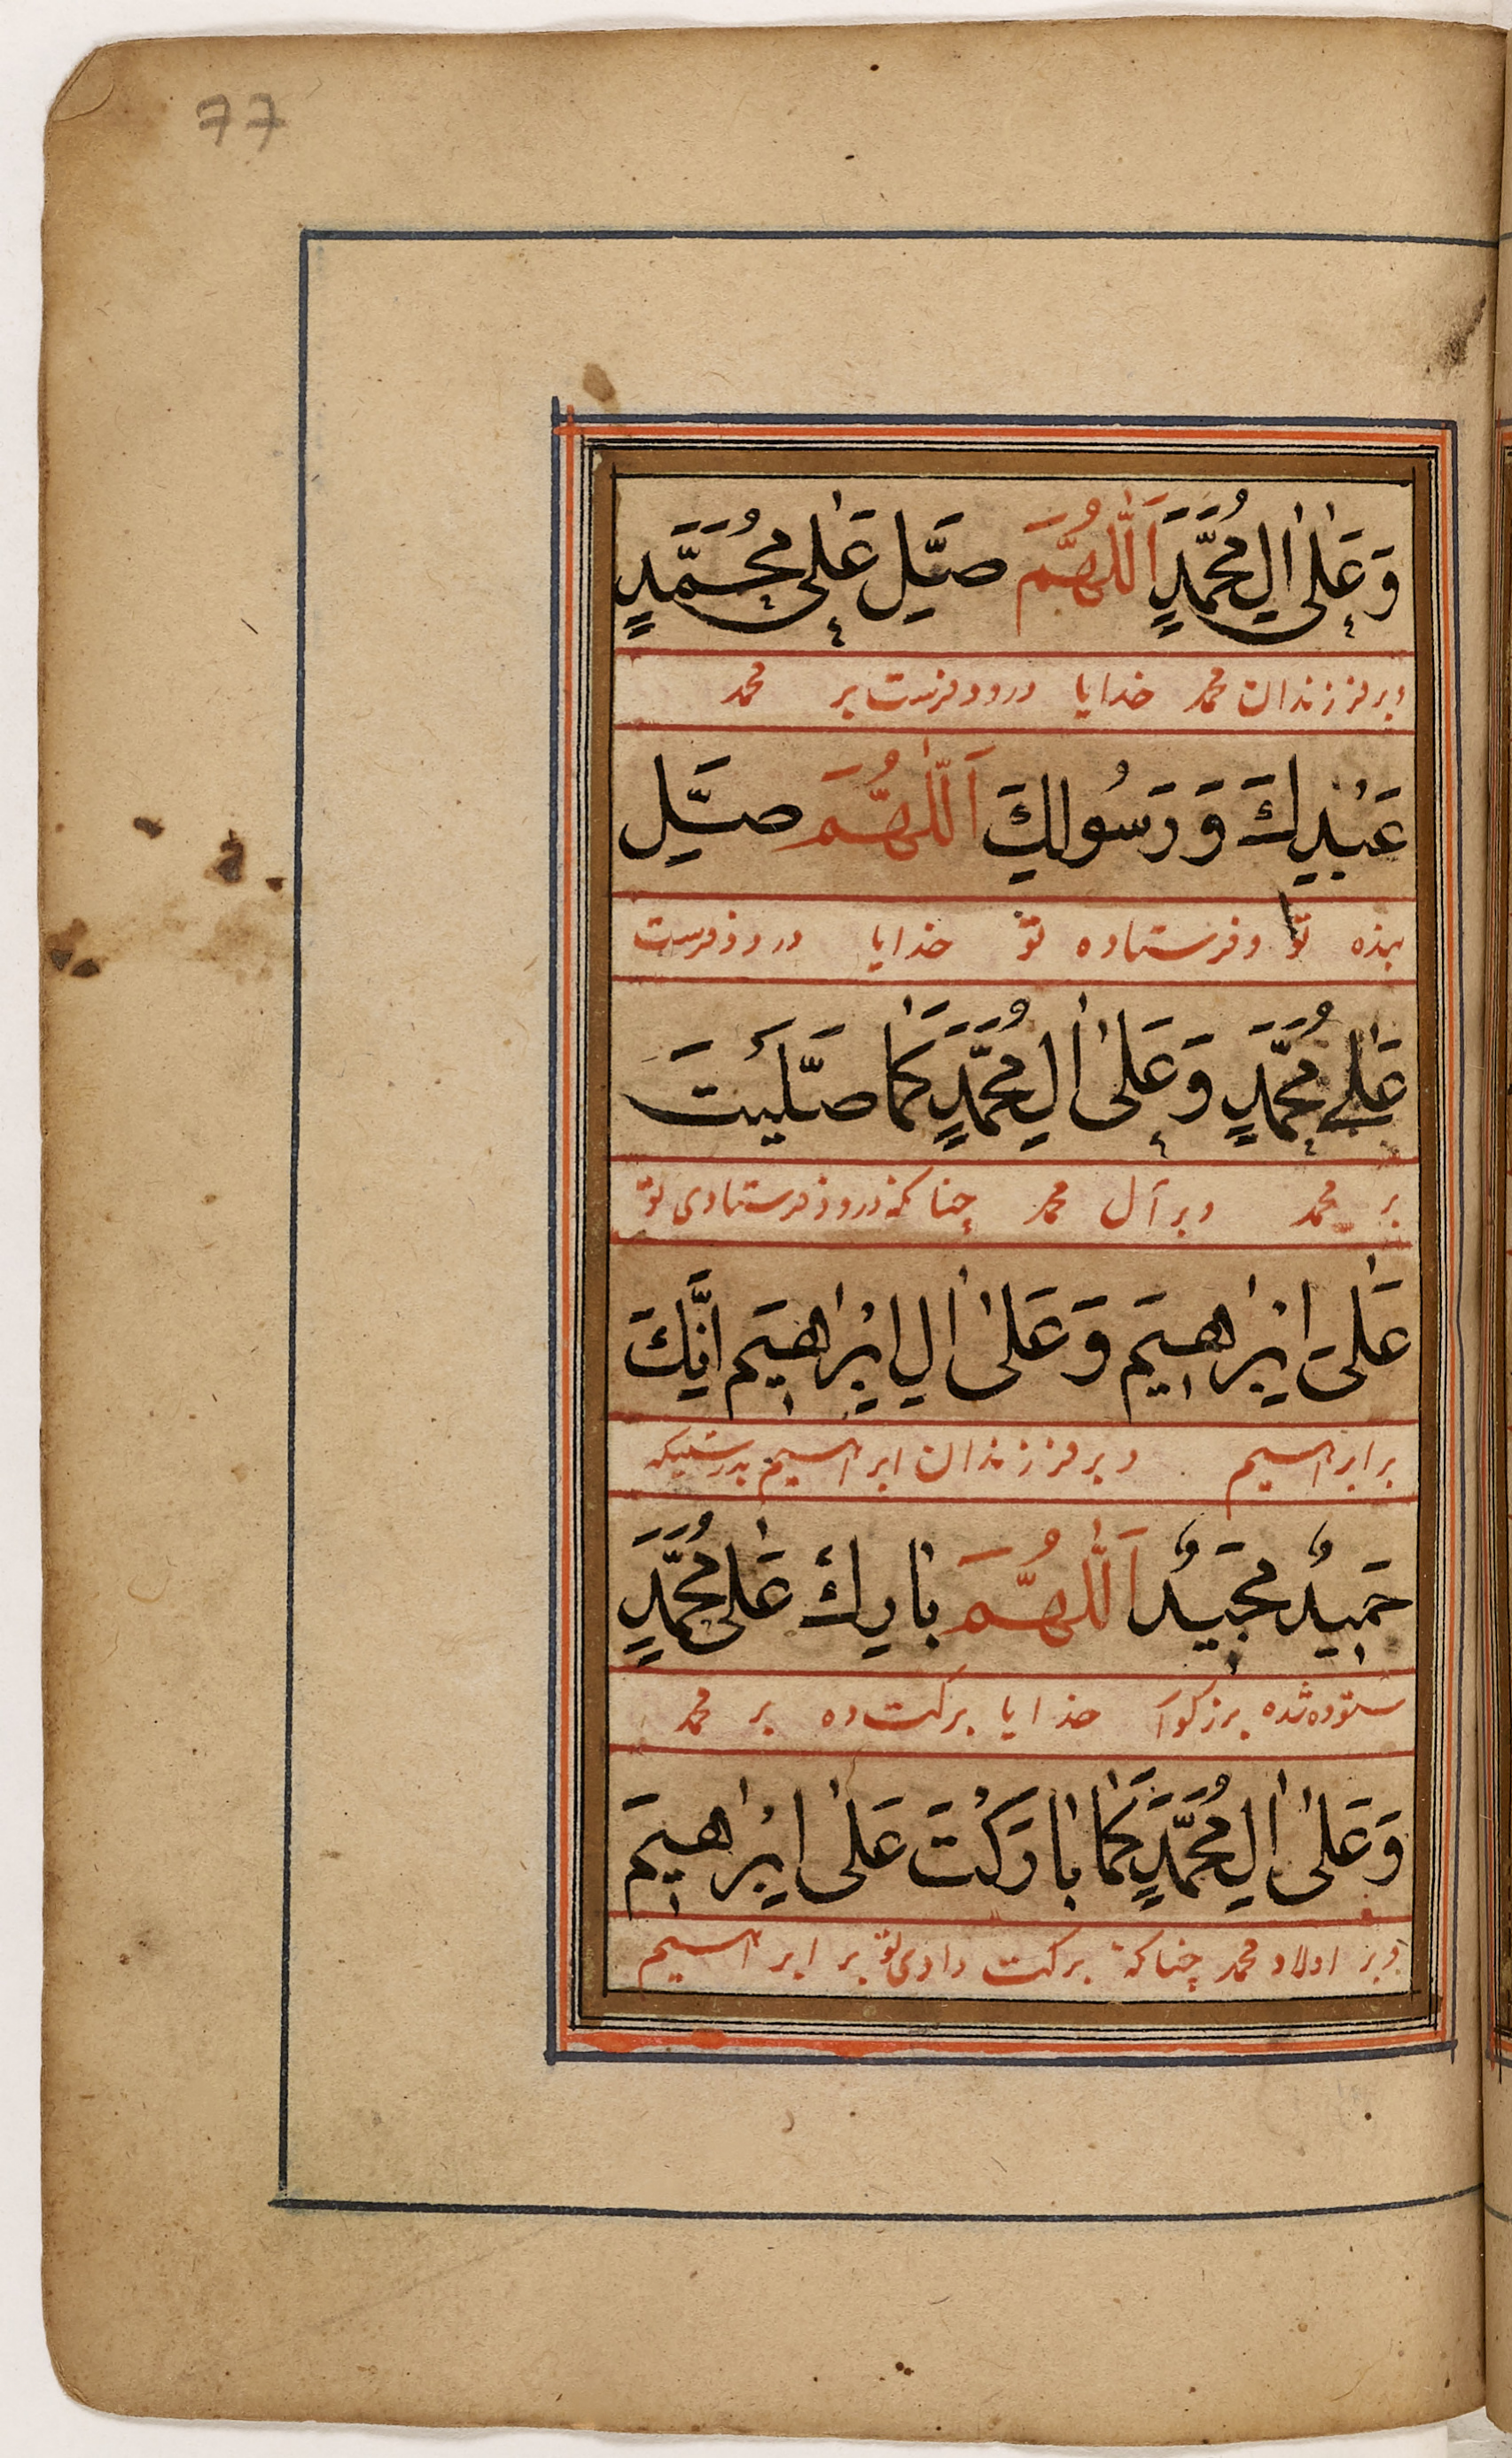 77
وَعَلٰى اٰلِ مُحَمَّدٍ اَللّٰهُمَّ صَلِّ عَلٰى مُحَمَّدٍ
وبر فرزندان محمد خدایا درود فرست بر محمد
عَبْدِكَ وَ رَسُولِكَ اَللّٰهُمَّ صَلِّ
بنده تو و فرستاده تو خدایا درود فرست
عَلٰى مُحَمَّدٍ وَعَلٰى اٰلِ مُحَمَّدٍ كَمَا صَلَّيْتَ
بر محمد وبر آل محمد چنانکه درود فرستادی تو
عَلٰى اِبْرَاهِيمَ وَعَلٰى اٰلِ اِبْرَاهِيمَ اِنَّكَ
بر ابراهیم وبر فرزندان ابراهیم بدرستیکه
حَمِيدٌ مَجِيدٌ اَللّٰهُمَّ بَارِكْ عَلٰى مُحَمَّدٍ
ستوده شده بزرکوار خدایا برکت ده بر محمد
وَعَلٰى اٰلِ مُحَمَّدٍ كَمَا بَارَكْتَ عَلٰى اِبْرَاهِيمَ
وبر اولاد محمد چنانکه برکت دادی تو بر ابراهیم